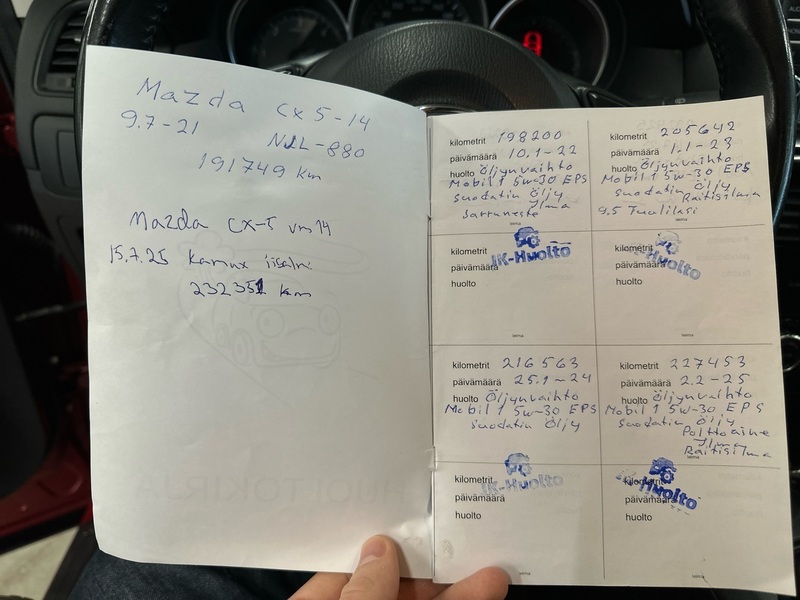 Mazda CX5-14
9.7-21
NJL-880
191749 km
Mazda CX-5 vm14
15.7.25 Kamux iisalmi
232351 km
kilometrit 198200
päivämäärä 10.1-22
huolto Öljynvaihto
Mobil 1 5w-30 EPS
Suodatin Öljy
Ilma
Jarruneste
leima
kilometrit
päivämäärä
huolto
JK-Huolto
leima
kilometrit 205642
päivämäärä 1.1-23
huolto Öljynvaihto
Mobil 1 5w-30 EPS
Suodatin Öljy
Raitisilma
9.5 Tuulilasi
leima
kilometrit
päivämäärä
huolto
JK-Huolto
leima
kilometrit 216563
päivämäärä 25.1-24
huolto Öljynvaihto
Mobil 1 5w-30 EPS
Suodatin Öljy
kilometrit
päivämäärä
huolto
JK-Huolto
leima
kilometrit 227453
päivämäärä 2.2-25
huolto Öljynvaihto
Mobil 1 5w-30 EPS
Suodatin Öljy
Polttoaine
Ilma
Raitisilma
leima
kilometrit
päivämäärä
huolto
JK-Huolto
leima